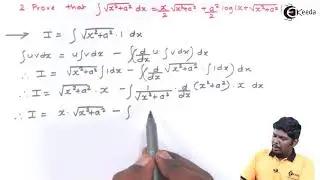 2. Prove that ∫√x²+a² dx = x/2 √x²+a² + a²/2 log|x+√x²+a²|
Ekeeda
→ I = ∫√x²+a² · 1 dx
∫uvdx = u∫vdx - ∫(d/dx u · ∫v dx) dx
∴ I = √x²+a² ∫1dx - ∫(d/dx √x²+a² · ∫1dx) dx
∴ I = √x²+a² · x - ∫ 1/√x²+a² · d/dx (x²+a²) · x dx
∴ I = x · √x²+a² - ∫